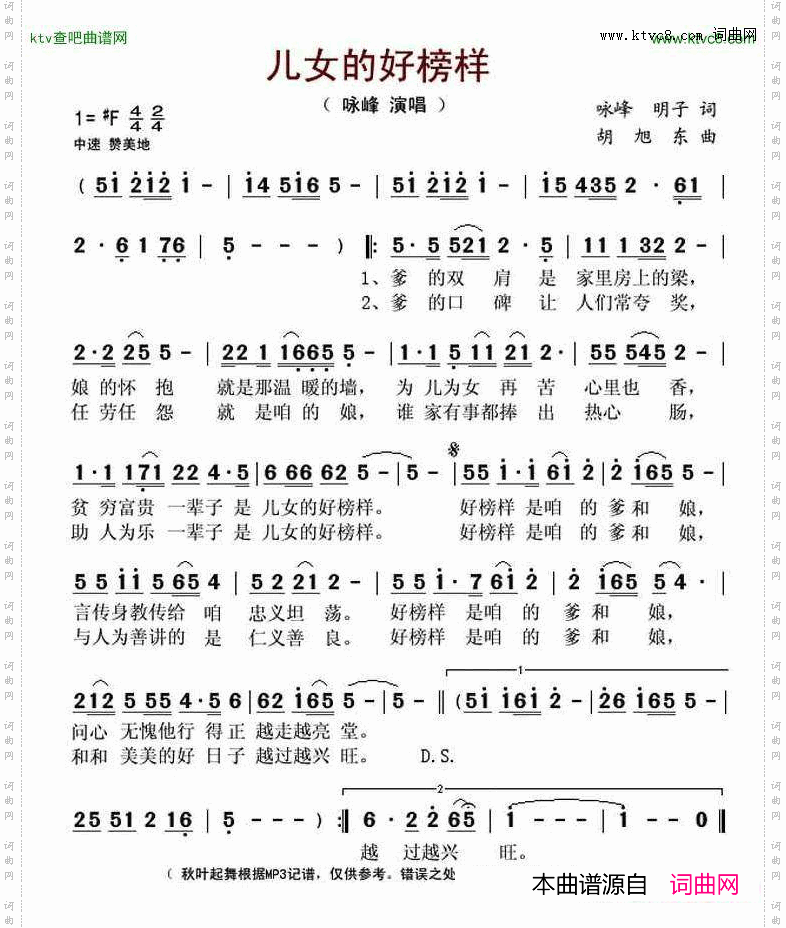 ktv查吧曲谱网
www.ktvc8.com 词曲网
www.ktvc8.com
儿女的好榜样
（ 咏峰 演唱 ）
1= #F 4/4 2/4
中速 赞美地
咏峰 明子 词
胡 旭 东 曲
( 51 212 1 - | 14 516 5 - | 51 212 1 - | 15 435 2 · 61 |
2 · 6 1 76 | 5 - - - ) ‖: 5 · 5 521 2 · 5 | 11 1 32 2 - |
1、爹 的双 肩 是 家里房上的梁，
2、爹 的口 碑 让 人们常夸 奖，
2 · 2 25 5 - | 22 1 1665 5 - | 1 · 1 5 11 21 2 · | 55 545 2 - |
娘 的怀 抱 就是那温 暖的墙， 为 儿为女 再 苦 心里也 香，
任 劳任 怨 就 是咱 的 娘， 谁 家有事都捧 出 热心 肠，
1 · 1 171 22 4 · 5 | 6 66 62 5 - | 5 - | 55 1 · 1 61 2 | 2 165 5 - |
贫 穷富贵 一辈子 是 儿女的好榜样。 好榜样 是咱 的 爹和 娘，
助 人为乐 一辈子 是 儿女的好榜样。 好榜样 是咱 的 爹和 娘，
5 5 11 5 65 4 | 5 2 21 2 - | 55 1 · 7 61 2 | 2 165 5 4 · |
言传身教传给 咱 忠义坦 荡。 好榜样 是咱 的 爹 和 娘，
与人为善讲的 是 仁义善 良。 好榜样 是咱 的 爹 和 娘，
1
212 5 55 4 · 5 6 | 62 165 5 - | 5 - ‖ ( 51 161 2 - | 26 165 5 - |
问心 无愧他行 得正 越走越亮 堂。
和和 美美的好 日子 越过越兴 旺。 D.S.
2
25 51 2 16 | 5 - - - ) :‖ 6 · 2 2 65 | 1 - - - | 1 - - 0 ‖
越 过越兴 旺。
（ 秋叶起舞根据MP3记谱，仅供参考。错误之处
本曲谱源自 词曲网
词曲网
词曲网
词曲网
词曲网
词曲网
词曲网
词曲网
词曲网
词曲网
词曲网
词曲网
词曲网
词曲网
词曲网